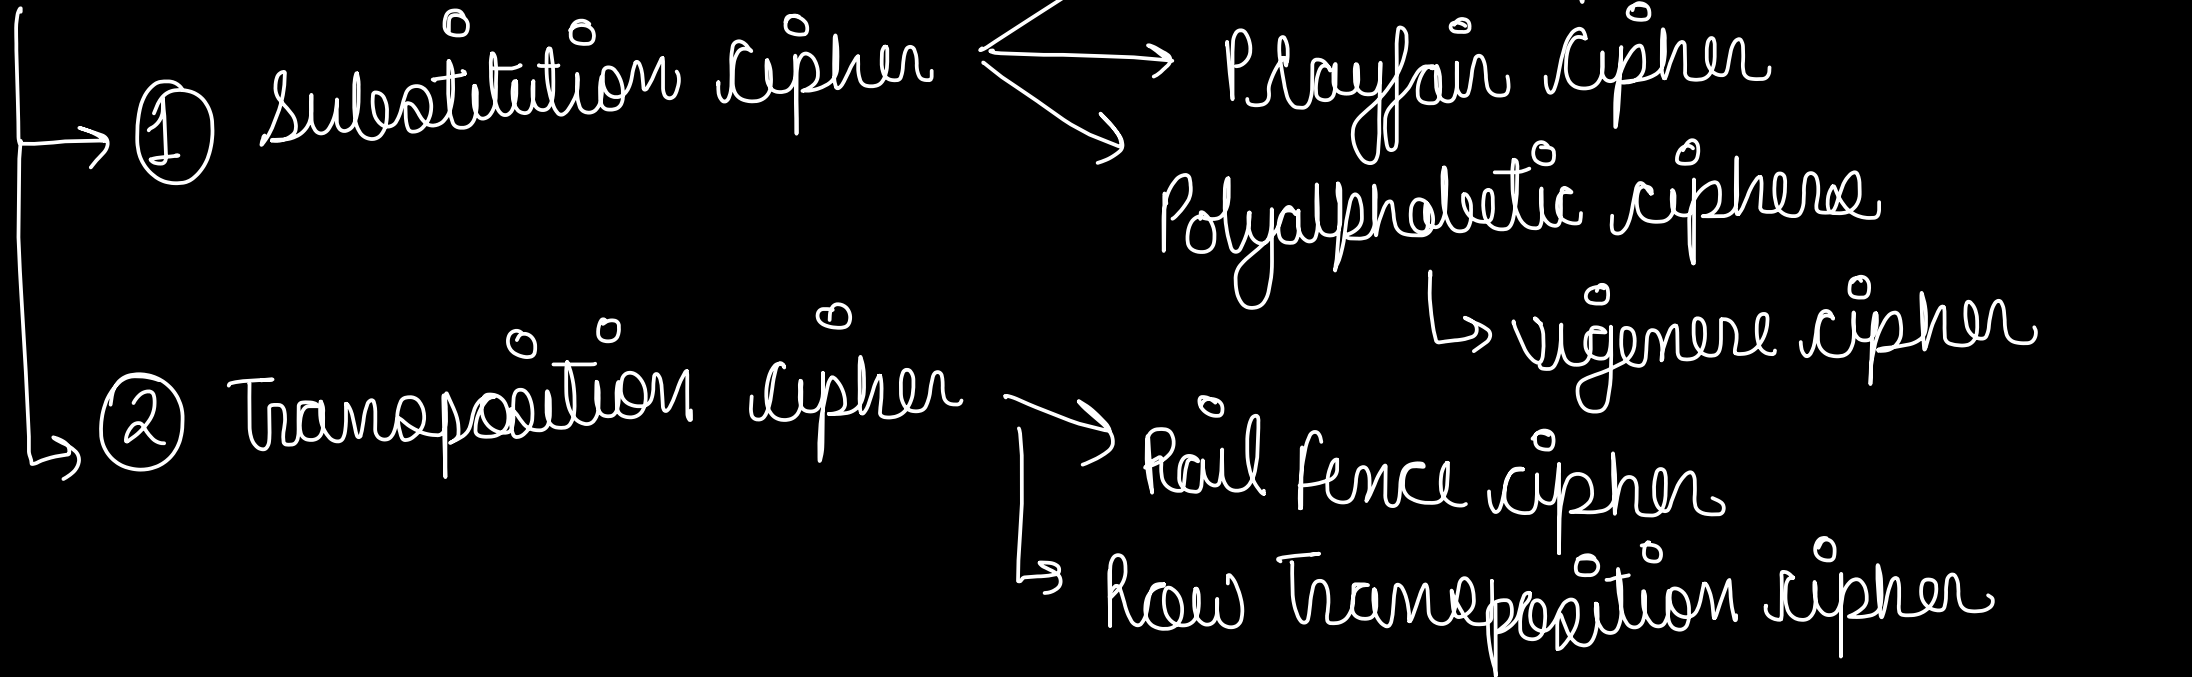 ① Substitution cipher
Playfair cipher
Polyalphabetic ciphers
vigenere cipher
② Transposition cipher
Rail fence cipher
Row Transposition cipher